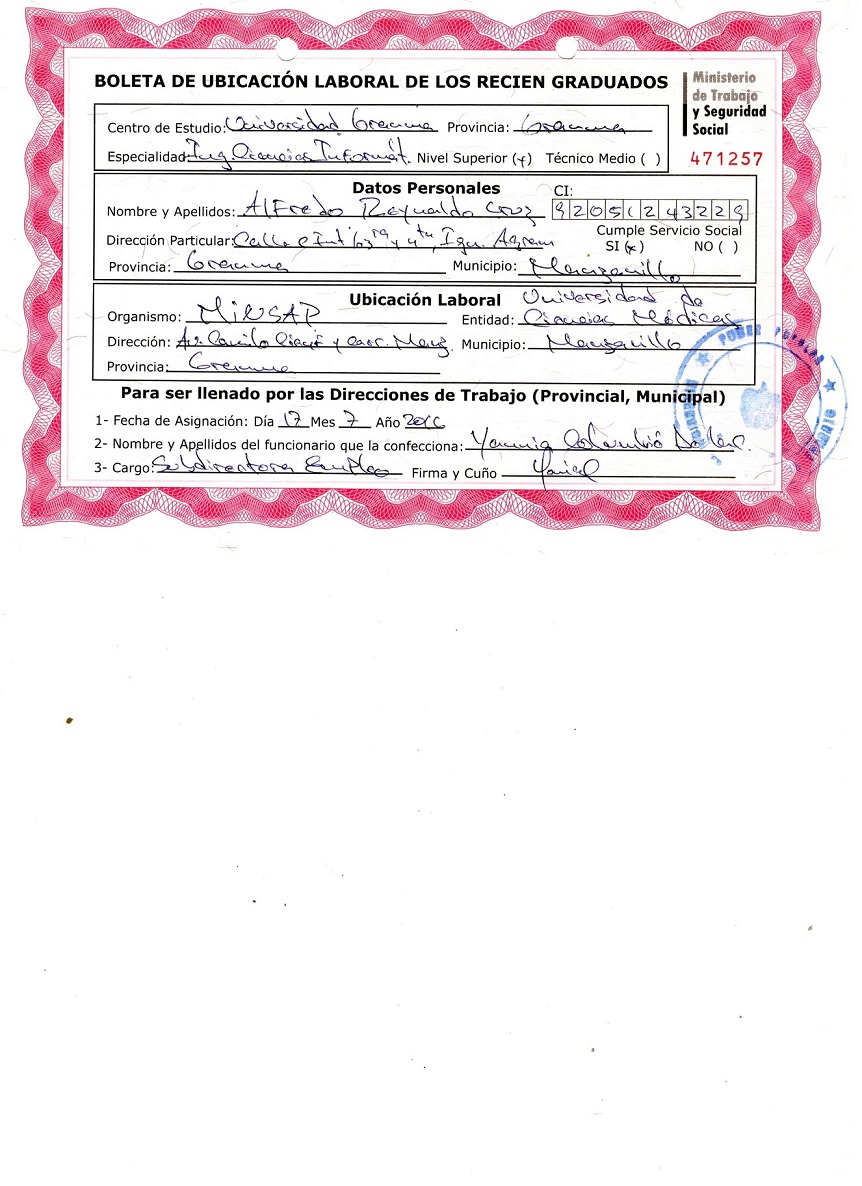 BOLETA DE UBICACIÓN LABORAL DE LOS RECIEN GRADUADOS
Ministerio
de Trabajo
y Seguridad
Social
471257
Centro de Estudio: Universidad Granma Provincia: Granma
Especialidad: Ing. Ciencias Informát. Nivel Superior (x) Técnico Medio ( )
Datos Personales
CI:
Nombre y Apellidos: Alfredo Reynaldo Cruz 92051243229
Cumple Servicio Social
Dirección Particular: Calle e Int 1ra y 4ta, Ign. Agram
SI (x) NO ( )
Provincia: Granma Municipio: Manzanillo
Ubicación Laboral
Organismo: MINSAP Entidad: Universidad de Ciencias Médicas
Dirección: Av. Camilo Cienf y carr. Manz. Municipio: Manzanillo
Provincia: Granma
Para ser llenado por las Direcciones de Trabajo (Provincial, Municipal)
1- Fecha de Asignación: Día 17 Mes 7 Año
2- Nombre y Apellidos del funcionario que la confecciona:
3- Cargo: Subdirectora Empleo Firma y Cuño
PODER POPULAR